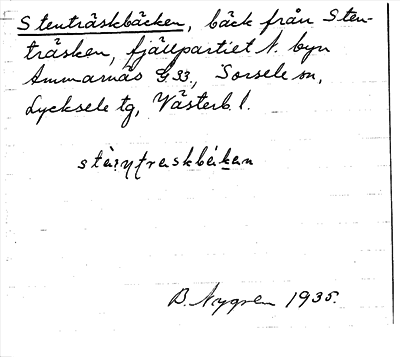 Stenträskbäcken, bäck från Sten-
träsken, fjällpartiet N. byn
Ammarnäs G 33., Sorsele sn,
Lycksele tg, Västerb. l.
B. Nygren 1935.